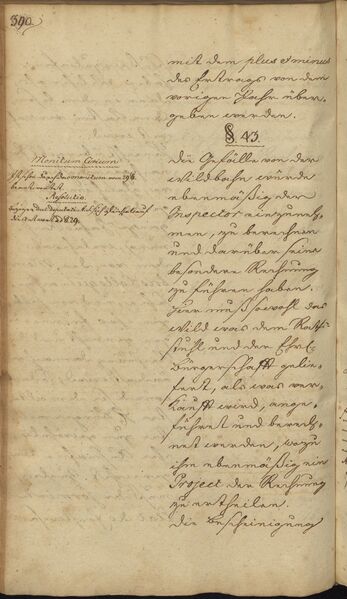 390
mit dem plus et minus
des Ertrags von dem
vorigen Jahr über,
geben werden.
§ 43.
Die Gefälle von der
Wildbahn würde
ebenmäßig der
Inspector einzuneh,
men, zu berechnen
und darüber seine
besondere Rechnung
zu führen haben.
Hier muß sowohl das
Wild was dem Rath,
stuhl und der Ehrl.
Bürgerschafft gelie,
fert, als was ver,
kaufft wird, ange,
führet und berech,
net werden, wozu
ihm ebenmäßig ein
Project der Rechnung
zu ertheilen.
Die Bescheinigung
Monitum Civium
beantwortet.
Resolutio.